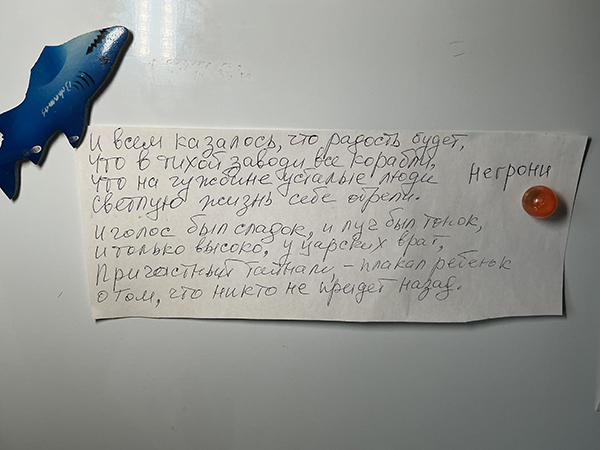 И всем казалось, что радость будет,
Что в тихой заводи все корабли,
Что на чужбине усталые люди
Светлую жизнь себе обрели.
И голос был сладок, и луч был тонок,
И только высоко, у царских врат,
Причастный тайнам, – плакал ребенок
О том, что никто не придет назад.
Негрони